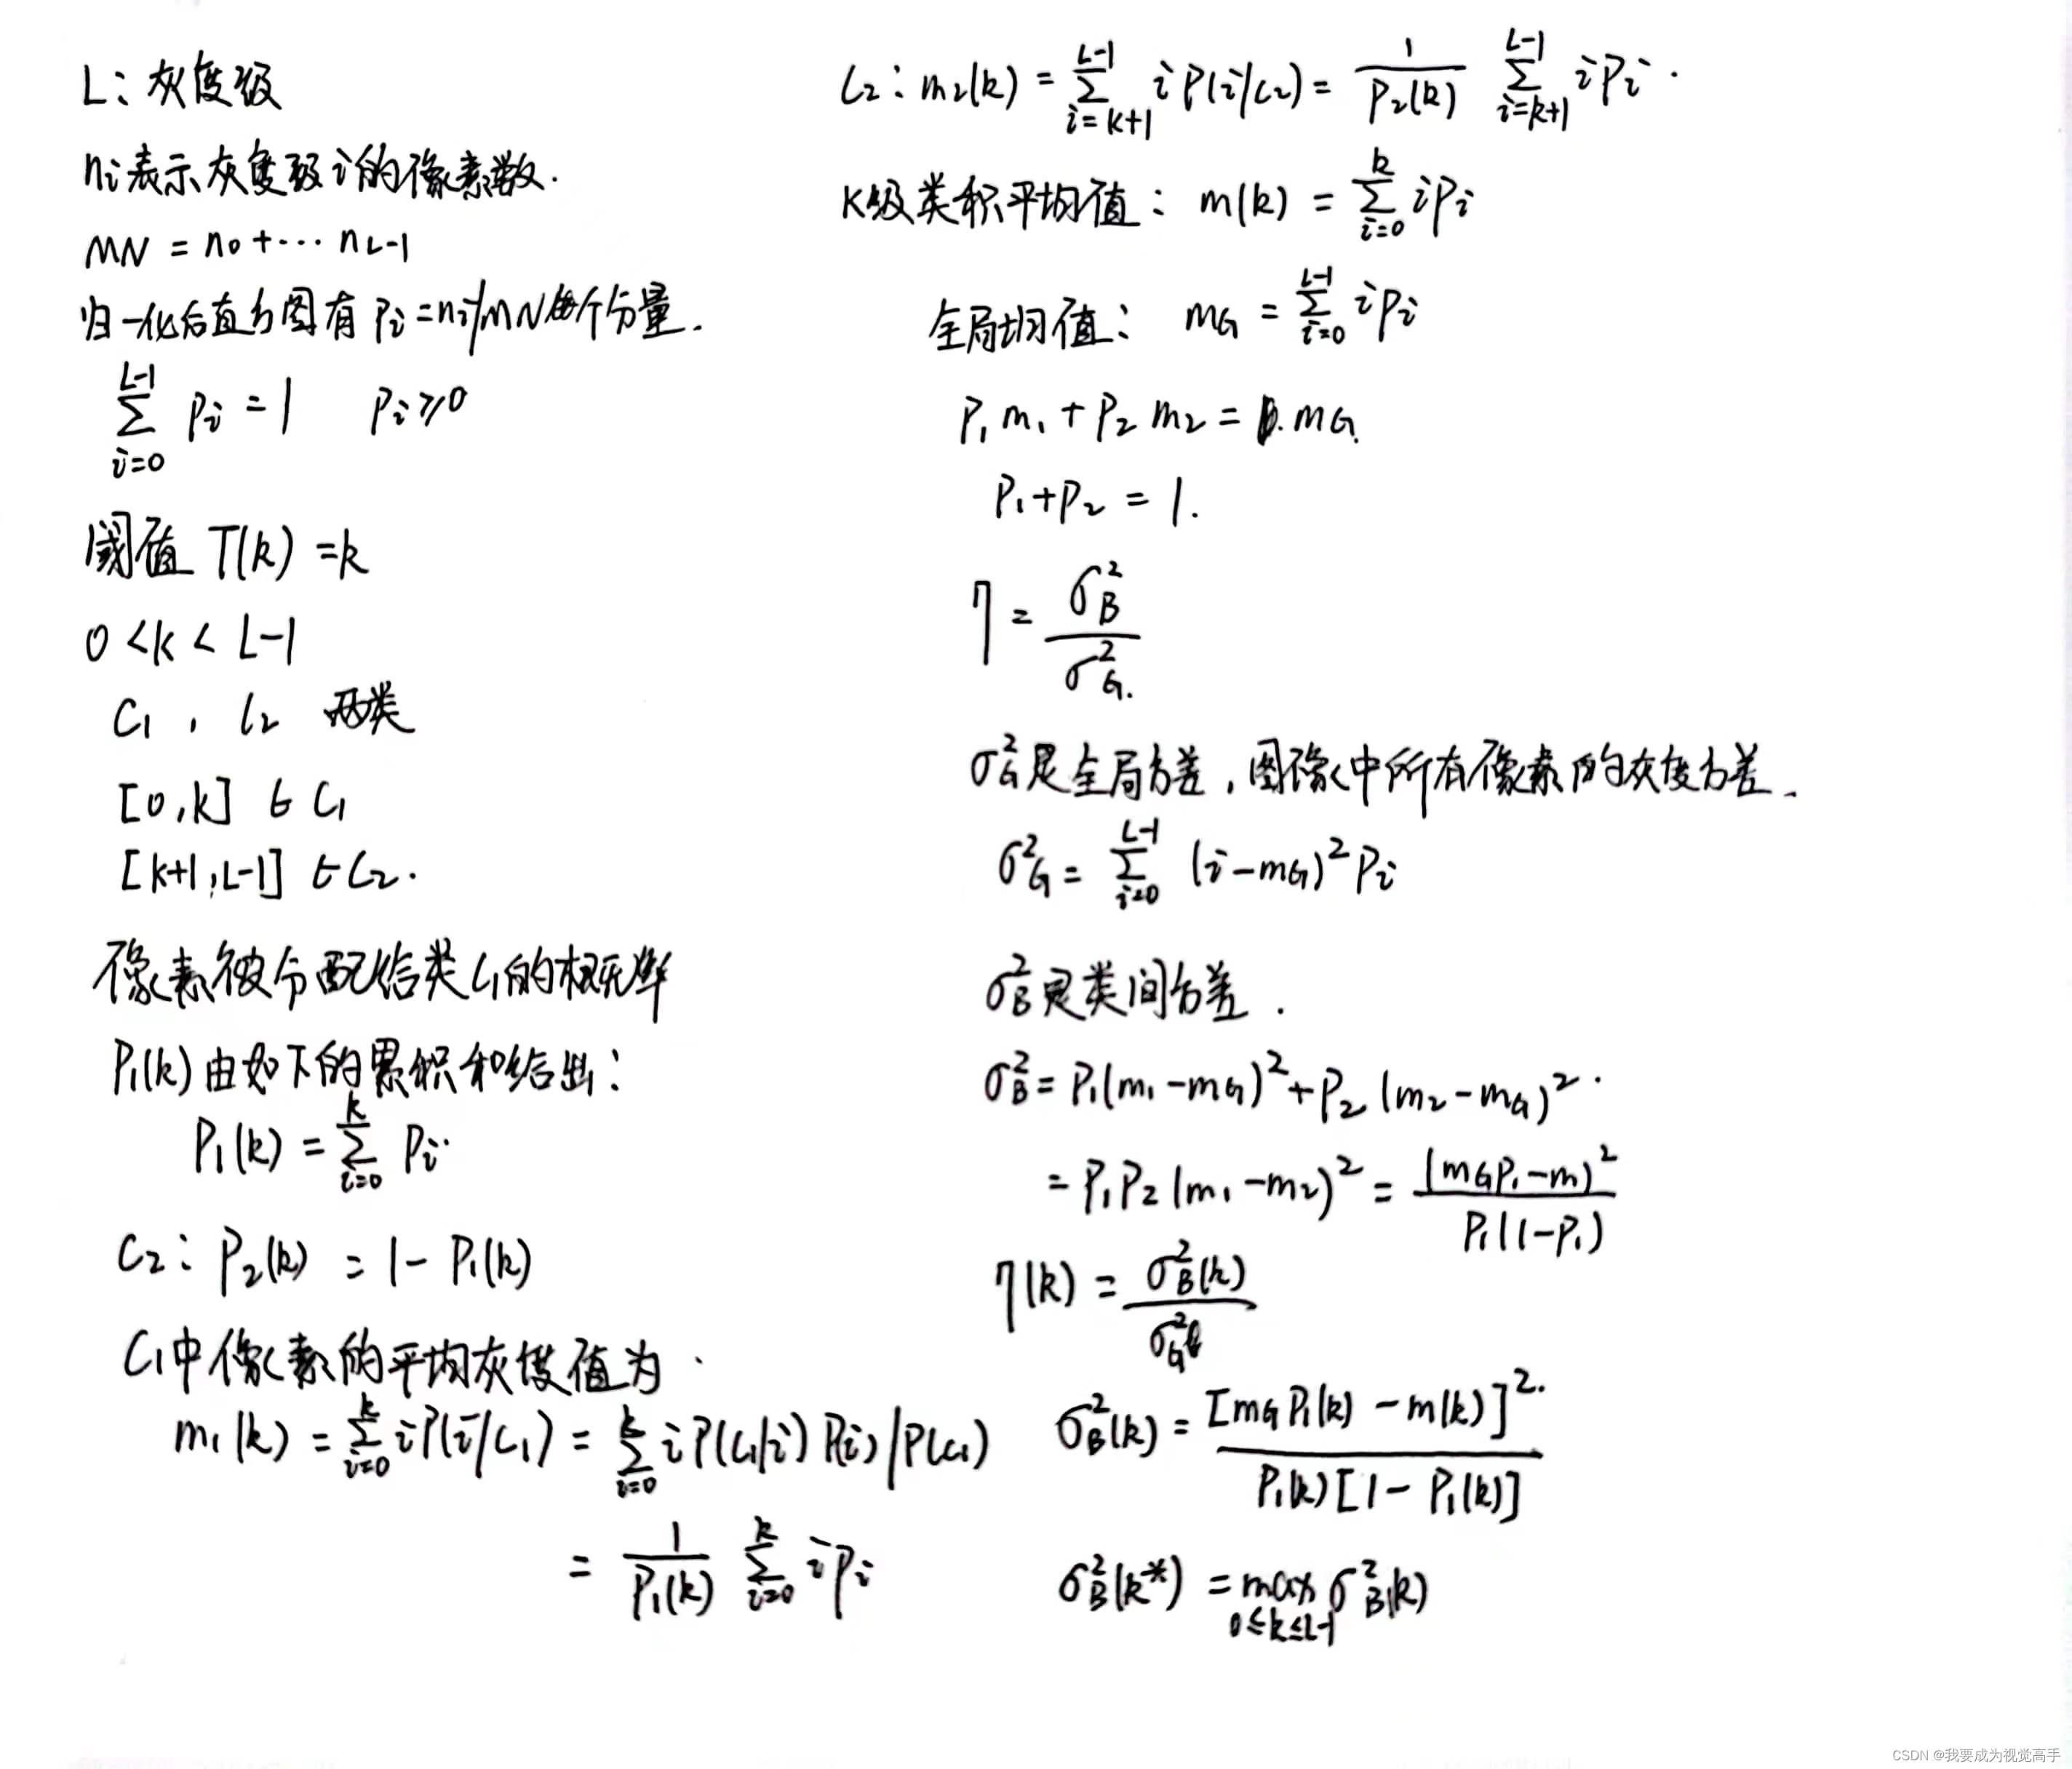 L：灰度级
ni表示灰度级i的像素数.
MN = n0+··· nL-1
归一化后直方图有 Pi=ni/MN每个分量.
∑_{i=0}^{L-1} Pi = 1 Pi≥0
阈值 T(k) =k
0 <k < L-1
C1 , C2 两类
[0,k] ∈ C1
[k+1,L-1] ∈C2.
像素被分配给类C1的概率
P1(k)由如下的累积和给出：
P1(k) = ∑_{i=0}^{k} Pi
C2：P2(k) = 1- P1(k)
C1中像素的平均灰度值为
m1(k) = ∑_{i=0}^{k} iP(i/C1) = ∑_{i=0}^{k} i P(C1/i) P(i) / P(C1)
= 1/P1(k) ∑_{i=0}^{k} iPi
C2：m2(k) = ∑_{i=k+1}^{L-1} i P(i/C2) = 1/P2(k) ∑_{i=k+1}^{L-1} iPi .
K级类积平均值： m(k) = ∑_{i=0}^{k} iPi
全局均值： mG = ∑_{i=0}^{L-1} iPi
P1 m1 + P2 m2 = mG.
P1+P2 = 1.
η = σ²B / σ²G.
σ²G是全局方差，图像中所有像素的灰度方差.
σ²G = ∑_{i=0}^{L-1} (i-mG)² Pi
σ²B是类间方差.
σ²B = P1(m1-mG)²+P2 (m2-mG)².
= P1P2 (m1-m2)² = (mGP1-m)² / P1(1-P1)
η(k) = σ²B(k) / σ²G
σ²B(k) = [mG P1(k) - m(k)]² / P1(k)[1- P1(k)]
σ²B(k*) = max_{0≤k≤L-1} σ²B(k)
CSDN @我要成为视觉高手